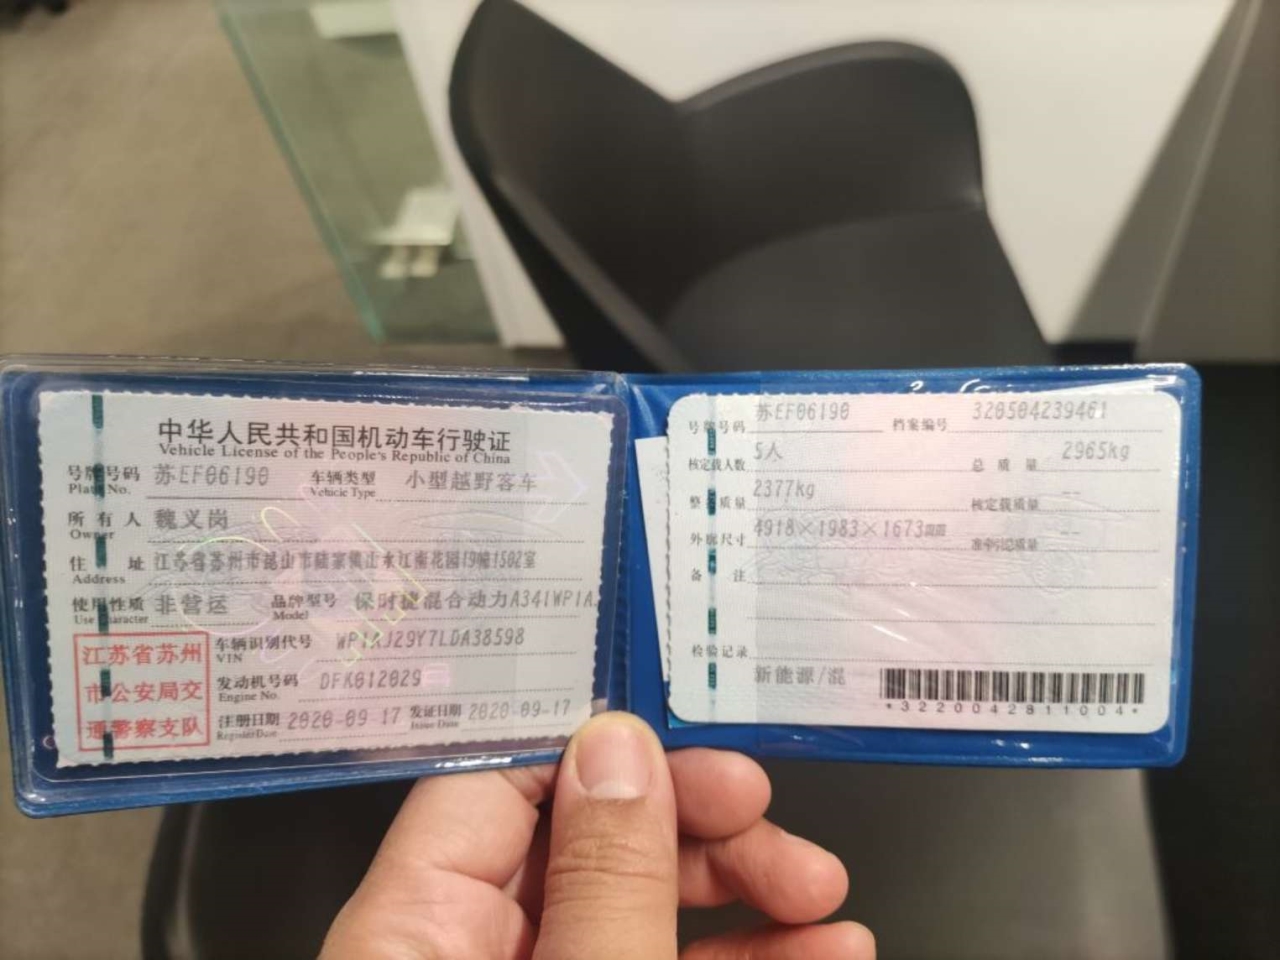 中华人民共和国机动车行驶证
Vehicle License of the People's Republic of China
号牌号码 苏EF06190 车辆类型 小型越野客车
Plate No. Vehicle Type
所有人 魏义岗
Owner
住址 江苏省苏州市昆山市陆家镇山水江南花园19幢1502室
Address
使用性质 非营运 品牌型号 保时捷混合动力A34IWP1A
Use Character Model
江苏省苏州
市公安局交
通警察支队
车辆识别代号 WP1AJ29Y7LDA38598
VIN
发动机号码 DFK012029
Engine No.
注册日期 2020-09-17 发证日期 2020-09-17
Register Date Issue Date
号牌号码 苏EF06190 档案编号 320504239461
核定载人数 5人 总质量 2965kg
整备质量 2377kg 核定载质量 --
外廓尺寸 4918×1983×1673mm 准牵引总质量 --
备注
检验记录
新能源/混
*3220042811004*